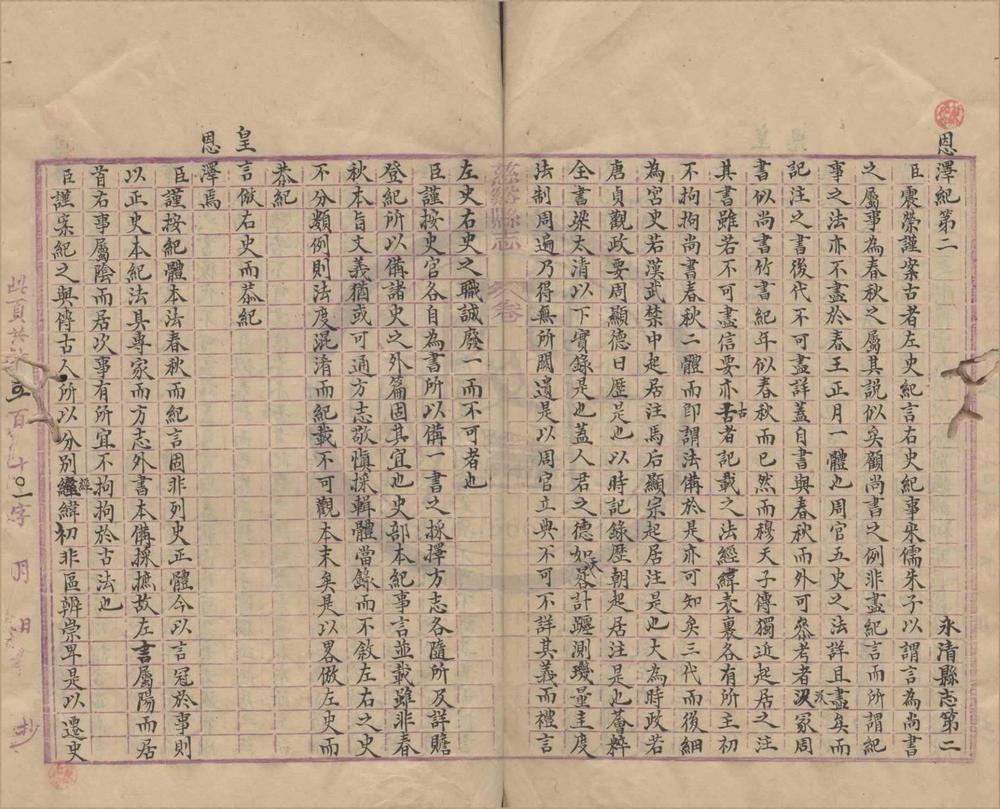 恩澤紀第二　永清縣志第二
臣震榮謹案古者左史紀言右史紀事宋儒朱子以謂言為尚書
之屬事為春秋之屬其說似矣顧尚書之例非盡紀言而所謂紀
事之法亦不盡於春王正月一體也周官五史之法詳且盡矣而
記注之書後代不可盡詳蓋自書與春秋而外可叅考者汲冢周
書似尚書竹書紀年似春秋而已然而穆天子傳獨近起居之注
其書雖若不可盡信要亦古者記載之法經緯表裏各有所主初
不拘拘尚書春秋二體而即謂法備於是亦可知矣三代而後細
為宮史若漢武禁中起居注馬后顯宗起居注是也大為時政若
唐貞觀政要周顯德日歷是也以時記錄歷朝起居注是也薈粹
全書梁太清以下實錄是也蓋人君之德如天晷計躔測璣量圭度
法制周遍乃得無所闕遺是以周官立典不可不詳其義而禮言
左史右史之職誠廢一而不可者也
臣謹按史官各自為書所以備一書之採擇方志各隨所及詳贍
登紀所以備諸史之外篇固其宜也史部本紀事言並載雖非春
秋本旨文義猶或可通方志敬慎採輯體當錄而不敘左右之史
不分類例則法度混淆而紀載不可觀本末矣是以畧倣左史而
恭紀
皇
言倣右史而恭紀
恩
澤焉
臣謹按紀體本法春秋而紀言固非列史正體今以言冠於事則
以正史本紀法具專家而方志外書本備採摭故左言屬陽而居
首右事屬陰而居次事有所宜不拘拘於古法也
臣謹案紀之與傳古人所以分別經緯初非區辨崇卑是以遷史
慈谿縣志
卷
此頁共
五百十〇一字
月
日
抄